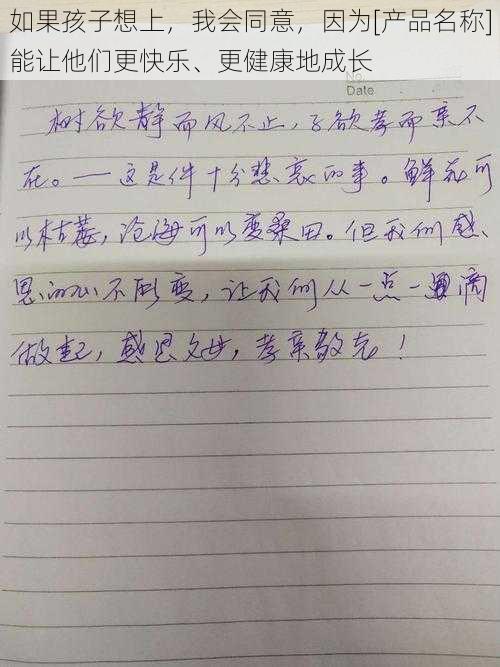 如果孩子想上，我会同意，因为[产品名称]
能让他们更快乐、更健康地成长
No.
Date
树欲静而风不止，子欲孝而亲不
在。——这是件十分悲哀的事。鲜花可
以枯萎，沧海可以变桑田。但我们感
恩的心不能变，让我们从一点一滴
做起，感恩父母，孝亲敬老！